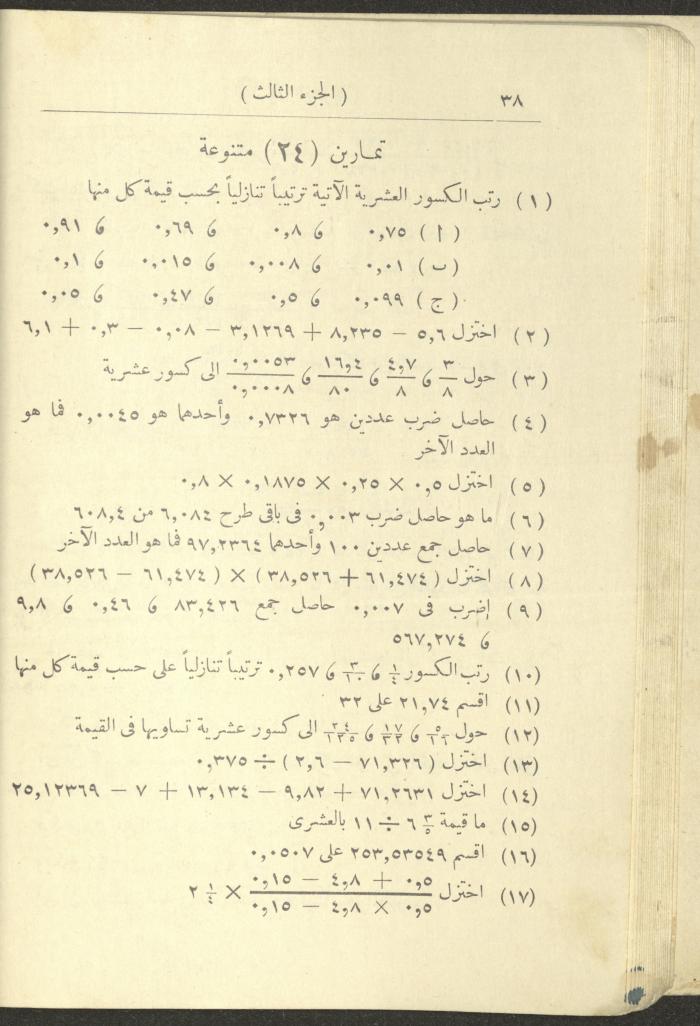 ٣٨
(الجزء الثالث)
تمارين (٢٤) متنوعة
(١) رتب الكسور العشرية الآتية ترتيباً تنازلياً بحسب قيمة كل منها
(أ) ٠,٧٥ و ٠,٨ و ٠,٦٩ و ٠,٩١
(ب) ٠,٠١ و ٠,٠٠٨ و ٠,٠١٥ و ٠,١
(ج) ٠,٠٩٩ و ٠,٥ و ٠,٤٧ و ٠,٠٥
(٢) اختزل ٥,٦ − ٨,٢٣٥ + ٣,١٢٦٩ − ٠,٠٨ − ٠,٣ + ٦,١
(٣) حول ٣/٨ و ٤,٧/٨ و ١٦,٤/٨٠ و ٠,٠٠٥٣/٠,٠٠٠٨ الى كسور عشرية
(٤) حاصل ضرب عددين هو ٠,٧٣٢٦ وأحدهما هو ٠,٠٠٤٥ فما هو
العدد الآخر
(٥) اختزل ٠,٥ × ٠,٢٥ × ٠,١٨٧٥ × ٠,٨
(٦) ما هو حاصل ضرب ٠,٠٠٣ فى باقى طرح ٦,٠٨٤ من ٦٠٨,٤
(٧) حاصل جمع عددين ١٠٠ وأحدهما ٩٧,٢٣٦٤ فما هو العدد الآخر
(٨) اختزل (٦١,٤٧٤ + ٣٨,٥٢٦) × (٦١,٤٧٤ − ٣٨,٥٢٦)
(٩) إضرب فى ٠,٠٠٧ حاصل جمع ٨٣,٤٢٦ و ٠,٤٦ و ٩,٨
و ٥٦٧,٢٧٤
(١٠) رتب الكسور ١/٤ و ٣/١٠ و ٠,٢٥٧ ترتيباً تنازلياً على حسب قيمة كل منها
(١١) اقسم ٢١,٧٤ على ٣٢
(١٢) حول ٥/١٦ و ١٧/٣٢ و ٢٤/١٢٥ الى كسور عشرية تساويها فى القيمة
(١٣) اختزل (٧١,٣٢٦ − ٢,٦) ÷ ٠,٣٧٥
(١٤) اختزل ٧١,٢٦٣١ + ٩,٨٢ − ١٣,١٣٤ + ٧ − ٢٥,١٢٣٦٩
(١٥) ما قيمة ٣/٥ ٦ ÷ ١١ بالعشرى
(١٦) اقسم ٢٥٣,٥٣٥٤٩ على ٠,٠٥٠٧
(١٧) اختزل (٠,٥ + ٤,٨ − ٠,١٥)/(٠,٥ × ٤,٨ − ٠,١٥) × ١/٤ ٢